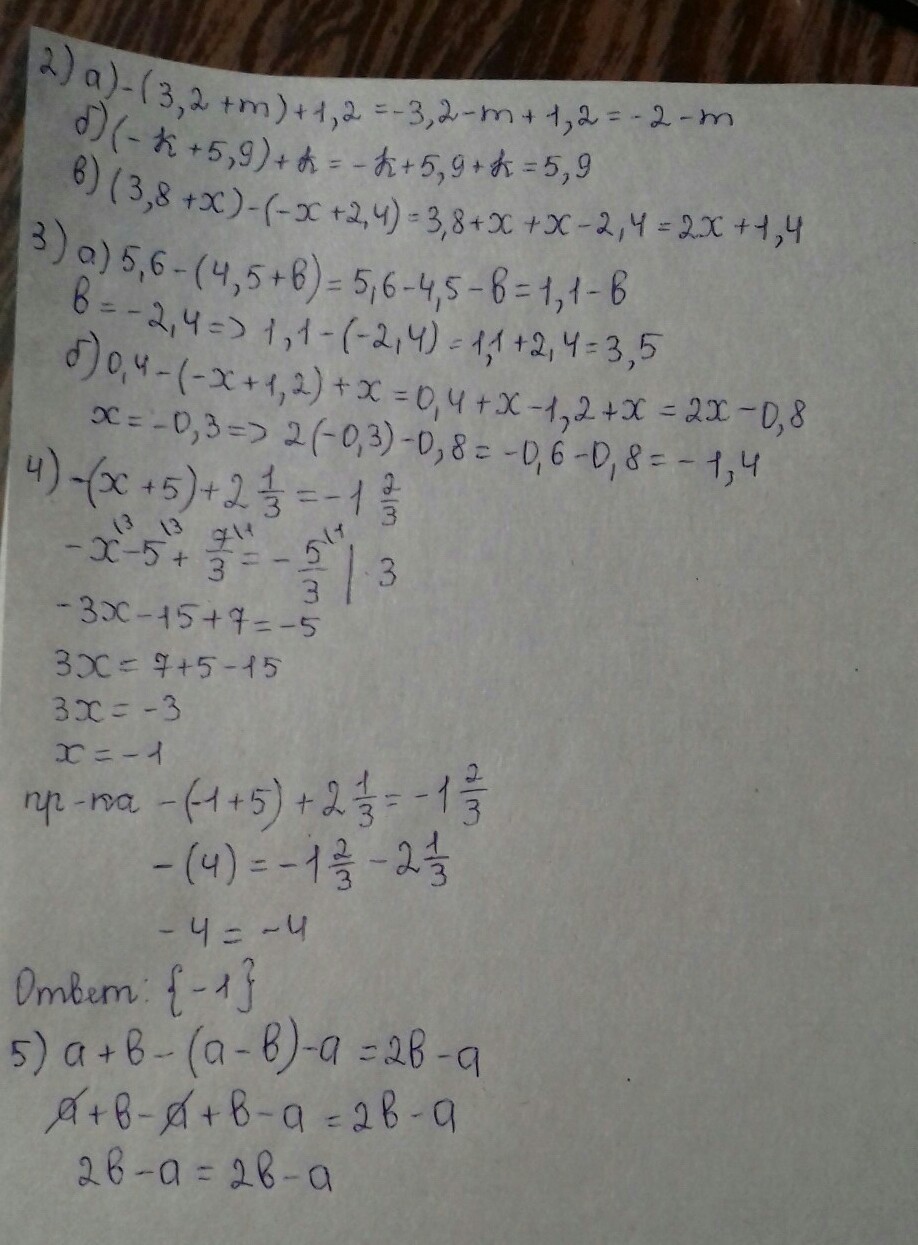 2) а) -(3,2+m)+1,2=-3,2-m+1,2=-2-m
б) (-k+5,9)+k=-k+5,9+k=5,9
в) (3,8+x)-(-x+2,4)=3,8+x+x-2,4=2x+1,4
3) а) 5,6-(4,5+в)=5,6-4,5-в=1,1-в
в=-2,4=> 1,1-(-2,4)=1,1+2,4=3,5
б) 0,4-(-x+1,2)+x=0,4+x-1,2+x=2x-0,8
x=-0,3=> 2(-0,3)-0,8=-0,6-0,8=-1,4
4) -(x+5)+2 1/3=-1 2/3
-x\3-5\3+7/3\1=-5/3\1 | ·3
-3x-15+7=-5
3x=7+5-15
3x=-3
x=-1
пр-ка -(-1+5)+2 1/3=-1 2/3
-(4)=-1 2/3-2 1/3
-4=-4
Ответ: {-1}
5) а+в-(а-в)-а=2в-а
а+в-а+в-а=2в-а
2в-а=2в-а